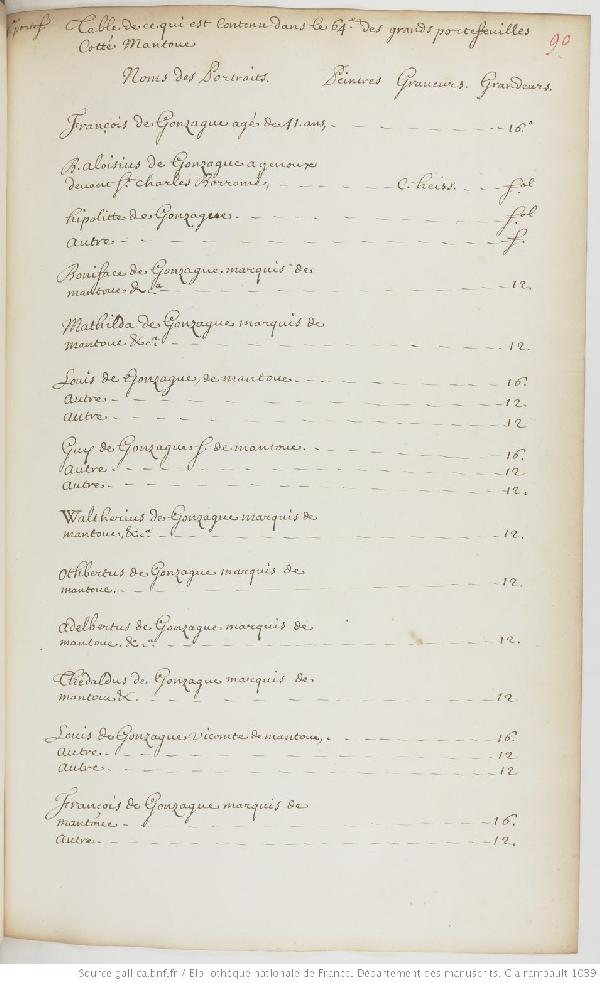 Table de ce qui est Contenu dans le 64.e des grands portefeuilles
Cotté Mantoue
90
Noms des Portraits. Peintres Graveurs. Grandeurs.
François de Gonzague agé de 11. ans, 16.o
B. aloisius de Gonzague a genoux
devant St. Charles Borromée, C. heiss. fol
hipolitte de Gonzague. fol
autre f.
Boniface de Gonzague marquis de
mantoue &ca 12.
Mathilda de Gonzague marquis de
mantoue &ca 12.
Louis de Gonzague, de mantoue 16.
autre 12.
autre 12
Guy de Gonzague f. de mantoue. 16.
autre 12
autre 12.
Waltherius de Gonzague marquis de
mantoue, &ca 12.
Othbertus de Gonzague marquis de
mantoue. 12.
Adelbertus de Gonzague marquis de
mantoue. &ca 12.
Thedaldus de Gonzague marquis de
mantoue &. 12
Louis de Gonzague Vicomte de mantoue, 16.
autre 12
autre 12
François de Gonzague marquis de
mantoue 16.
autre 12.
Source gallica.bnf.fr / Bibliothèque nationale de France. Département des manuscrits. Clairambault 1039